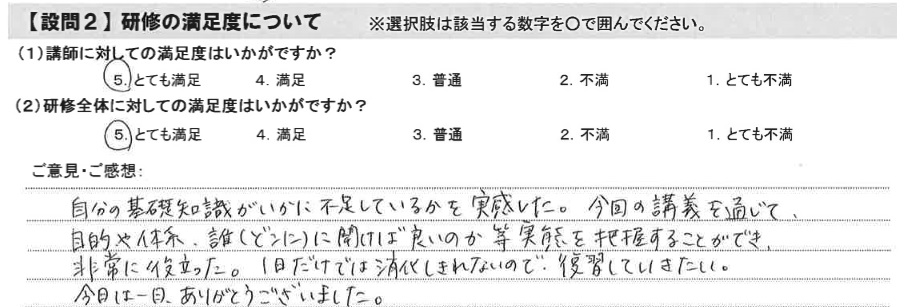 【設問２】研修の満足度について ※選択肢は該当する数字を〇で囲んでください。
(1)講師に対しての満足度はいかがですか？
5. とても満足 4. 満足 3. 普通 2. 不満 1. とても不満
(2)研修全体に対しての満足度はいかがですか？
5. とても満足 4. 満足 3. 普通 2. 不満 1. とても不満
ご意見・ご感想:
自分の基礎知識がいかに不足しているかを実感した。今回の講義を通じて、
目的や体系、誰(どこに)に聞けば良いのか等実態を把握することができ、
非常に役立った。1日だけでは消化しきれないので、復習していきたい。
今日は一日、ありがとうございました。